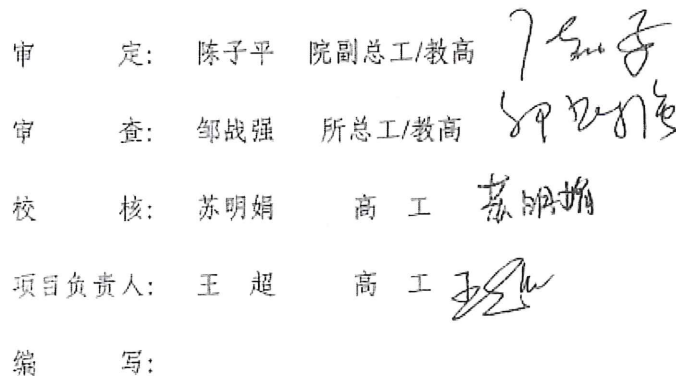 审 定: 陈子平 院副总工/教高
审 查: 邹战强 所总工/教高
校 核: 苏明娟 高 工 苏明娟
项目负责人: 王 超 高 工 王超
编 写: